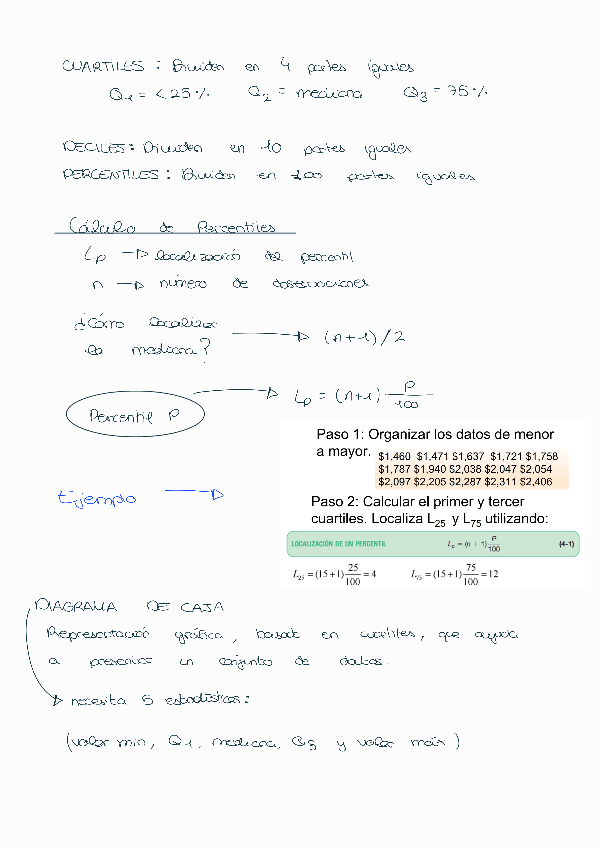 CUARTILES : Dividen en 4 partes iguales
Q1 = < 25 % Q2 = mediana Q3 = 75 %
DECILES : Dividen en 10 partes iguales
PERCENTILES : Dividen en 100 partes iguales
Cálculo de Percentiles
Lp → localización del percentil
n → número de observaciones
¿Cómo localizar
la mediana? → (n+1)/2
Percentil P → Lp = (n+1) P/100
Paso 1: Organizar los datos de menor
a mayor.
$1,460 $1,471 $1,637 $1,721 $1,758
$1,787 $1,940 $2,038 $2,047 $2,054
$2,097 $2,205 $2,287 $2,311 $2,406
Ejemplo →
Paso 2: Calcular el primer y tercer
cuartiles. Localiza L25 y L75 utilizando:
LOCALIZACIÓN DE UN PERCENTIL Lp = (n + 1) P/100 (4-1)
L25 = (15+1) 25/100 = 4 L75 = (15+1) 75/100 = 12
DIAGRAMA DE CAJA
Representación gráfica, basada en cuartiles, que ayuda
a presentar un conjunto de datos.
→ necesita 5 estadísticos :
(valor min, Q1, mediana, Q3 y valor máx)